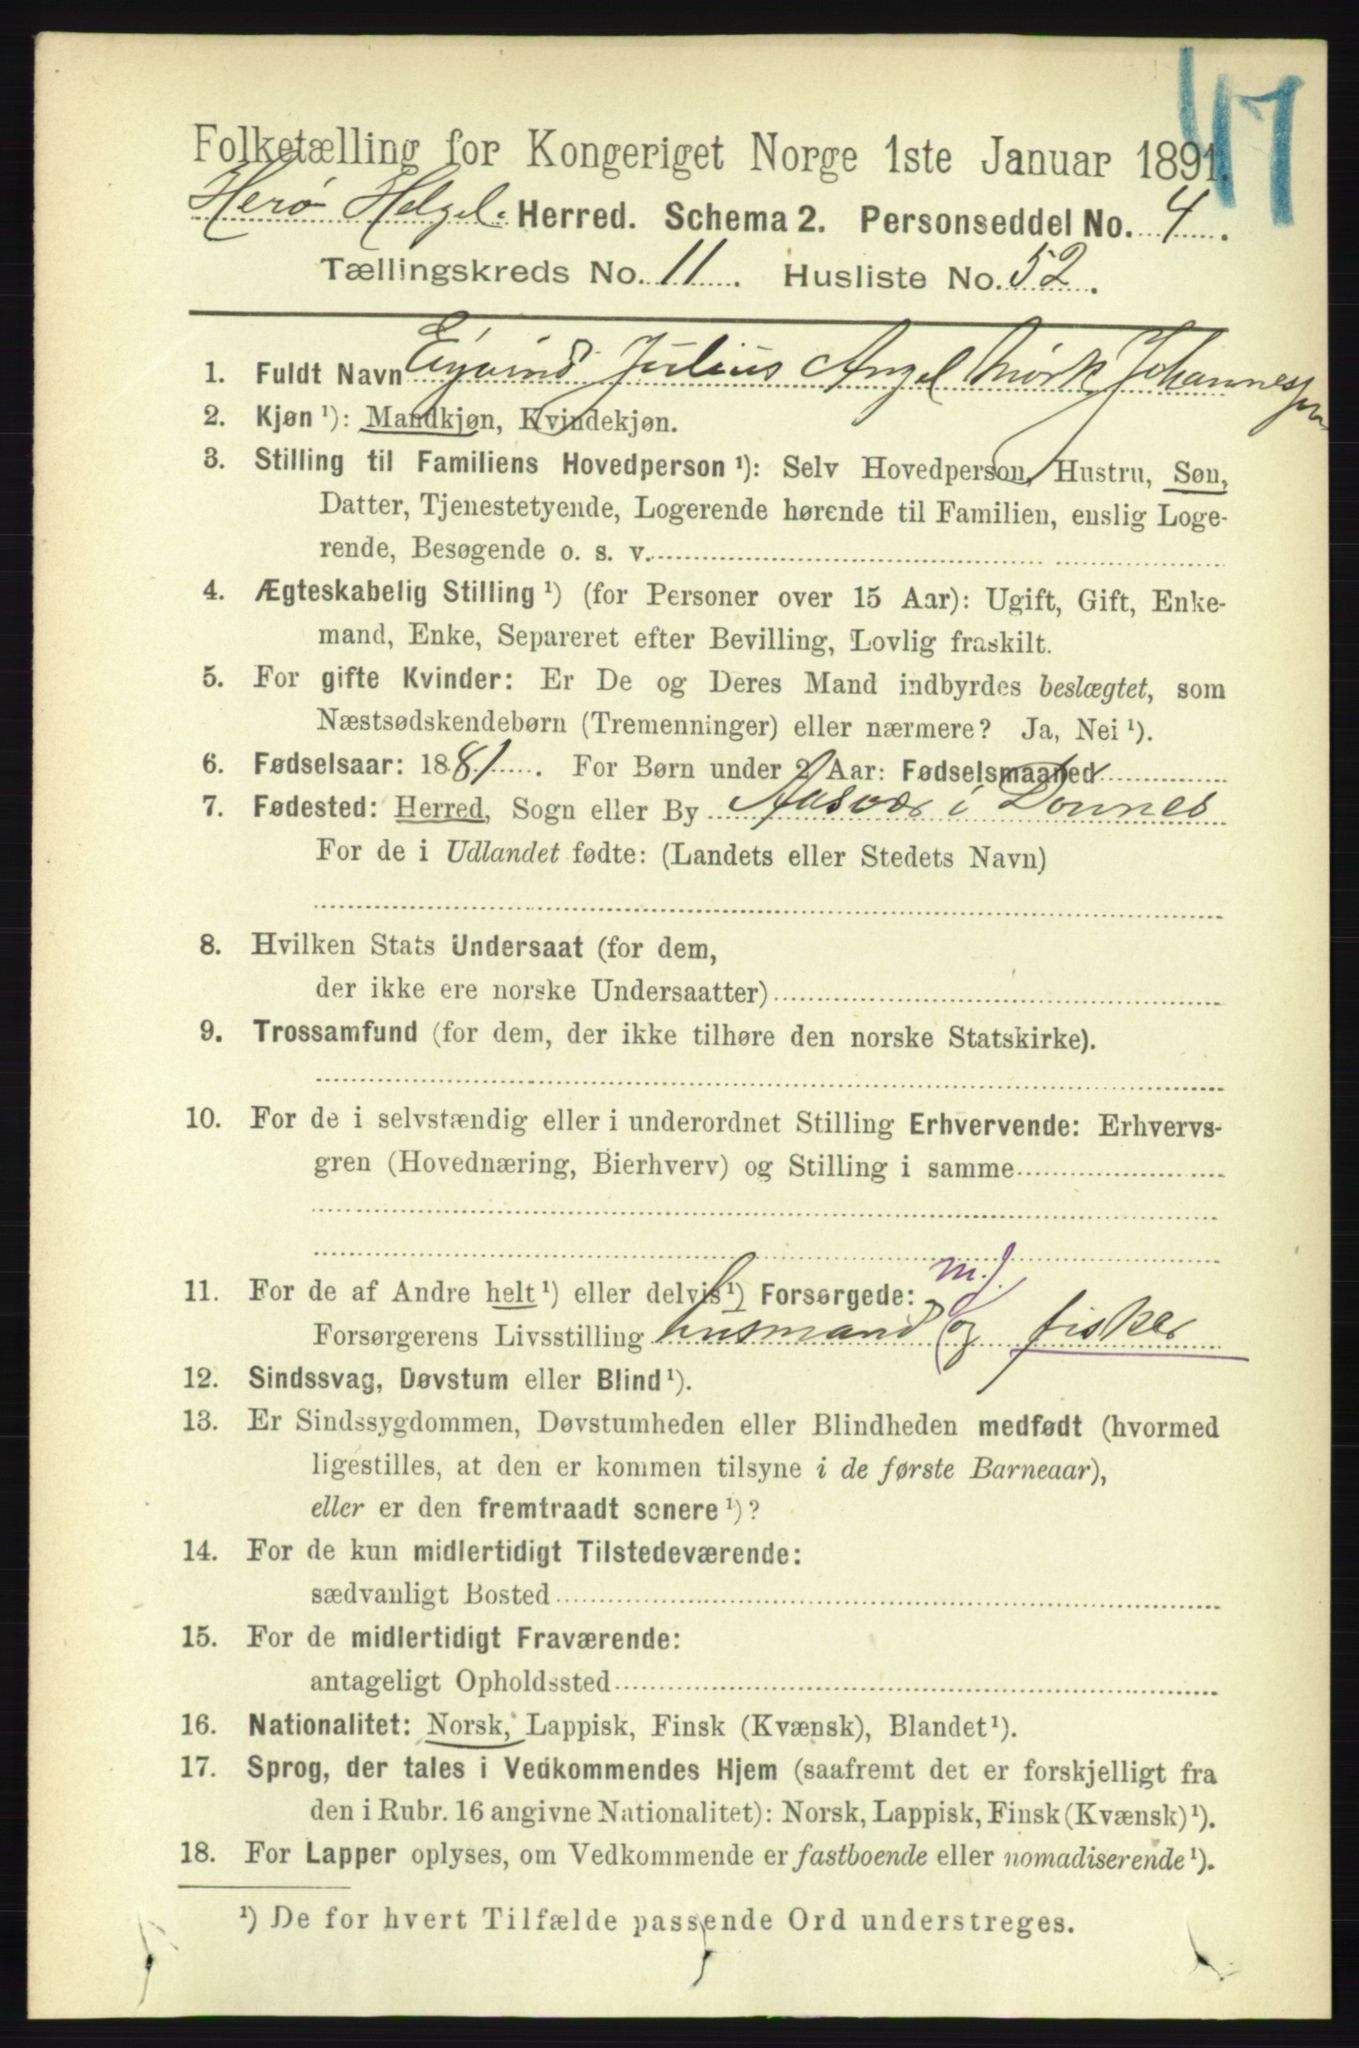 47
Folketælling for Kongeriget Norge 1ste Januar 1891.
Herø Helgel. Herred. Schema 2. Personseddel No. 4.
Tællingskreds No. 11. Husliste No. 52.
1. Fuldt Navn Eyvind Julius Angel Mørk Johannessen
2. Kjøn ¹): Mandkjøn, Kvindekjøn.
3. Stilling til Familiens Hovedperson ¹): Selv Hovedperson, Hustru, Søn,
Datter, Tjenestetyende, Logerende hørende til Familien, enslig Loge-
rende, Besøgende o. s. v.
4. Ægteskabelig Stilling ¹) (for Personer over 15 Aar): Ugift, Gift, Enke-
mand, Enke, Separeret efter Bevilling, Lovlig fraskilt.
5. For gifte Kvinder: Er De og Deres Mand indbyrdes beslægtet, som
Næstsødskendebørn (Tremenninger) eller nærmere? Ja, Nei ¹).
6. Fødselsaar: 1881. For Børn under 2 Aar: Fødselsmaaned
7. Fødested: Herred, Sogn eller By Aasvær i Dønnes
For de i Udlandet fødte: (Landets eller Stedets Navn)
8. Hvilken Stats Undersaat (for dem,
der ikke ere norske Undersaatter)
9. Trossamfund (for dem, der ikke tilhøre den norske Statskirke).
10. For de i selvstændig eller i underordnet Stilling Erhvervende: Erhvervs-
gren (Hovednæring, Bierhverv) og Stilling i samme
11. For de af Andre helt ¹) eller delvis ¹) Forsørgede: m.j.
Forsørgerens Livsstilling husmand (og fisker
12. Sindssvag, Døvstum eller Blind ¹).
13. Er Sindssygdommen, Døvstumheden eller Blindheden medfødt (hvormed
ligestilles, at den er kommen tilsyne i de første Barneaar),
eller er den fremtraadt senere ¹)?
14. For de kun midlertidigt Tilstedeværende:
sædvanligt Bosted
15. For de midlertidigt Fraværende:
antageligt Opholdssted
16. Nationalitet: Norsk, Lappisk, Finsk (Kvænsk), Blandet ¹).
17. Sprog, der tales i Vedkommendes Hjem (saafremt det er forskjelligt fra
den i Rubr. 16 angivne Nationalitet): Norsk, Lappisk, Finsk (Kvænsk) ¹).
18. For Lapper oplyses, om Vedkommende er fastboende eller nomadiserende ¹).
¹) De for hvert Tilfælde passende Ord understreges.